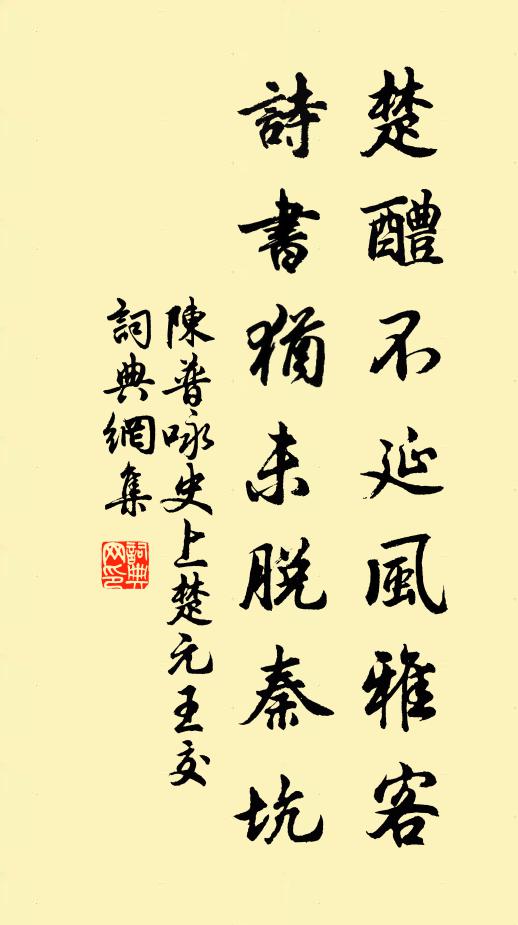 楚醴不延風雅客
詩書猶未脱秦坑
陳普咏史上楚元王交
詞典網集
詞典
网印